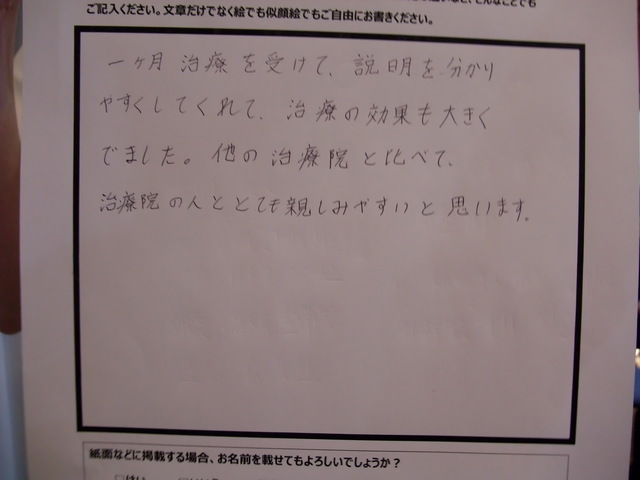 ご記入ください。文章だけでなく絵でも似顔絵でもご自由にお書きください。
一ヶ月 治療を受けて、説明を分かり
やすくしてくれて、治療の効果も大きく
でました。他の治療院と比べて、
治療院の人ととても親しみやすいと思います。
紙面などに掲載する場合、お名前を載せてもよろしいでしょうか？